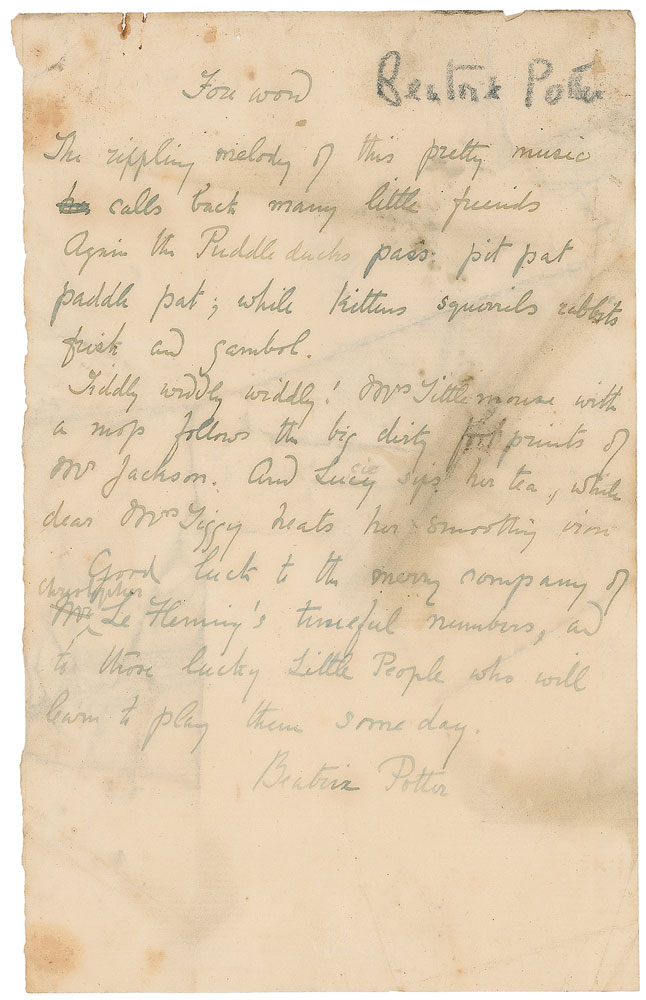 Foreword Beatrix Potter
The rippling melody of this pretty music
calls back many little friends
Again the Puddleducks pass. pit pat
paddle pat; while kittens squirrils rabbits
frisk and gambol.
Tiddly widdly widdly! Mrs Tittlemouse with
a mop follows the big dirty foot prints of
Mr Jackson. And Lucie sips her tea, while
dear Mrs Tiggy heats her smoothing iron
Good luck to the merry company of
Christopher
Mr Le Fleming's tuneful numbers, and
to those lucky Little People who will
learn to play them some day.
Beatrix Potter